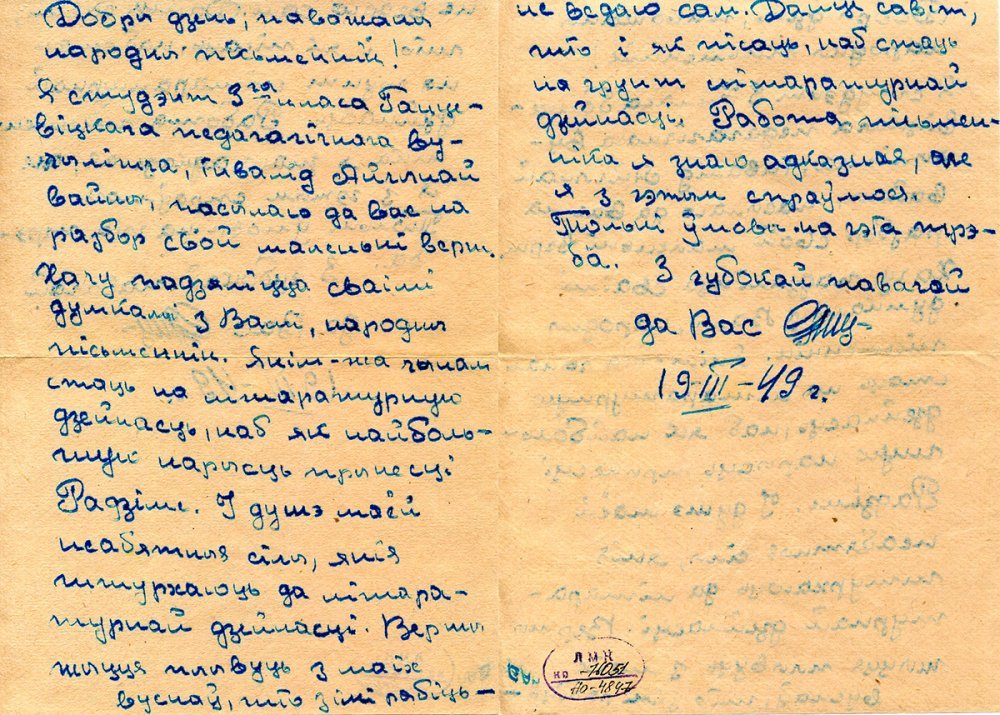 Добры дзень, паважаны
народны пісьменнік!
Я студэнт 3га класа Ганце-
віцкага педагагічнага ву-
чылішча, інвалід Айчыннай
вайны, пасылаю да вас на
разбор свой маленькі верш.
Хачу падзяліцца сваімі
думкамі з Вамі, народны
пісьменнік. Якім-жа чынам
стаць на літаратурную
дзейнасць, каб як найболь-
шую карысць прынесці
Радзіме. У душэ маёй
неабятныя сілы, якія
штурхаюць да літара-
турнай дзейнасці. Вершы
жыцця плывуць з маіх
вуснаў, што з імі рабіць-
не ведаю сам. Дайце савет,
што і як пісаць, каб стаць
на грунт літаратурнай
дзейнасці. Работа пісьмен-
ніка я знаю адказная, але
я з гэтым спраўлюся.
Толькі ўмовы на гэта трэ-
ба. З губокай павагай
да Вас
19-III-49 г.
ЛМК
КП-
НД-4847